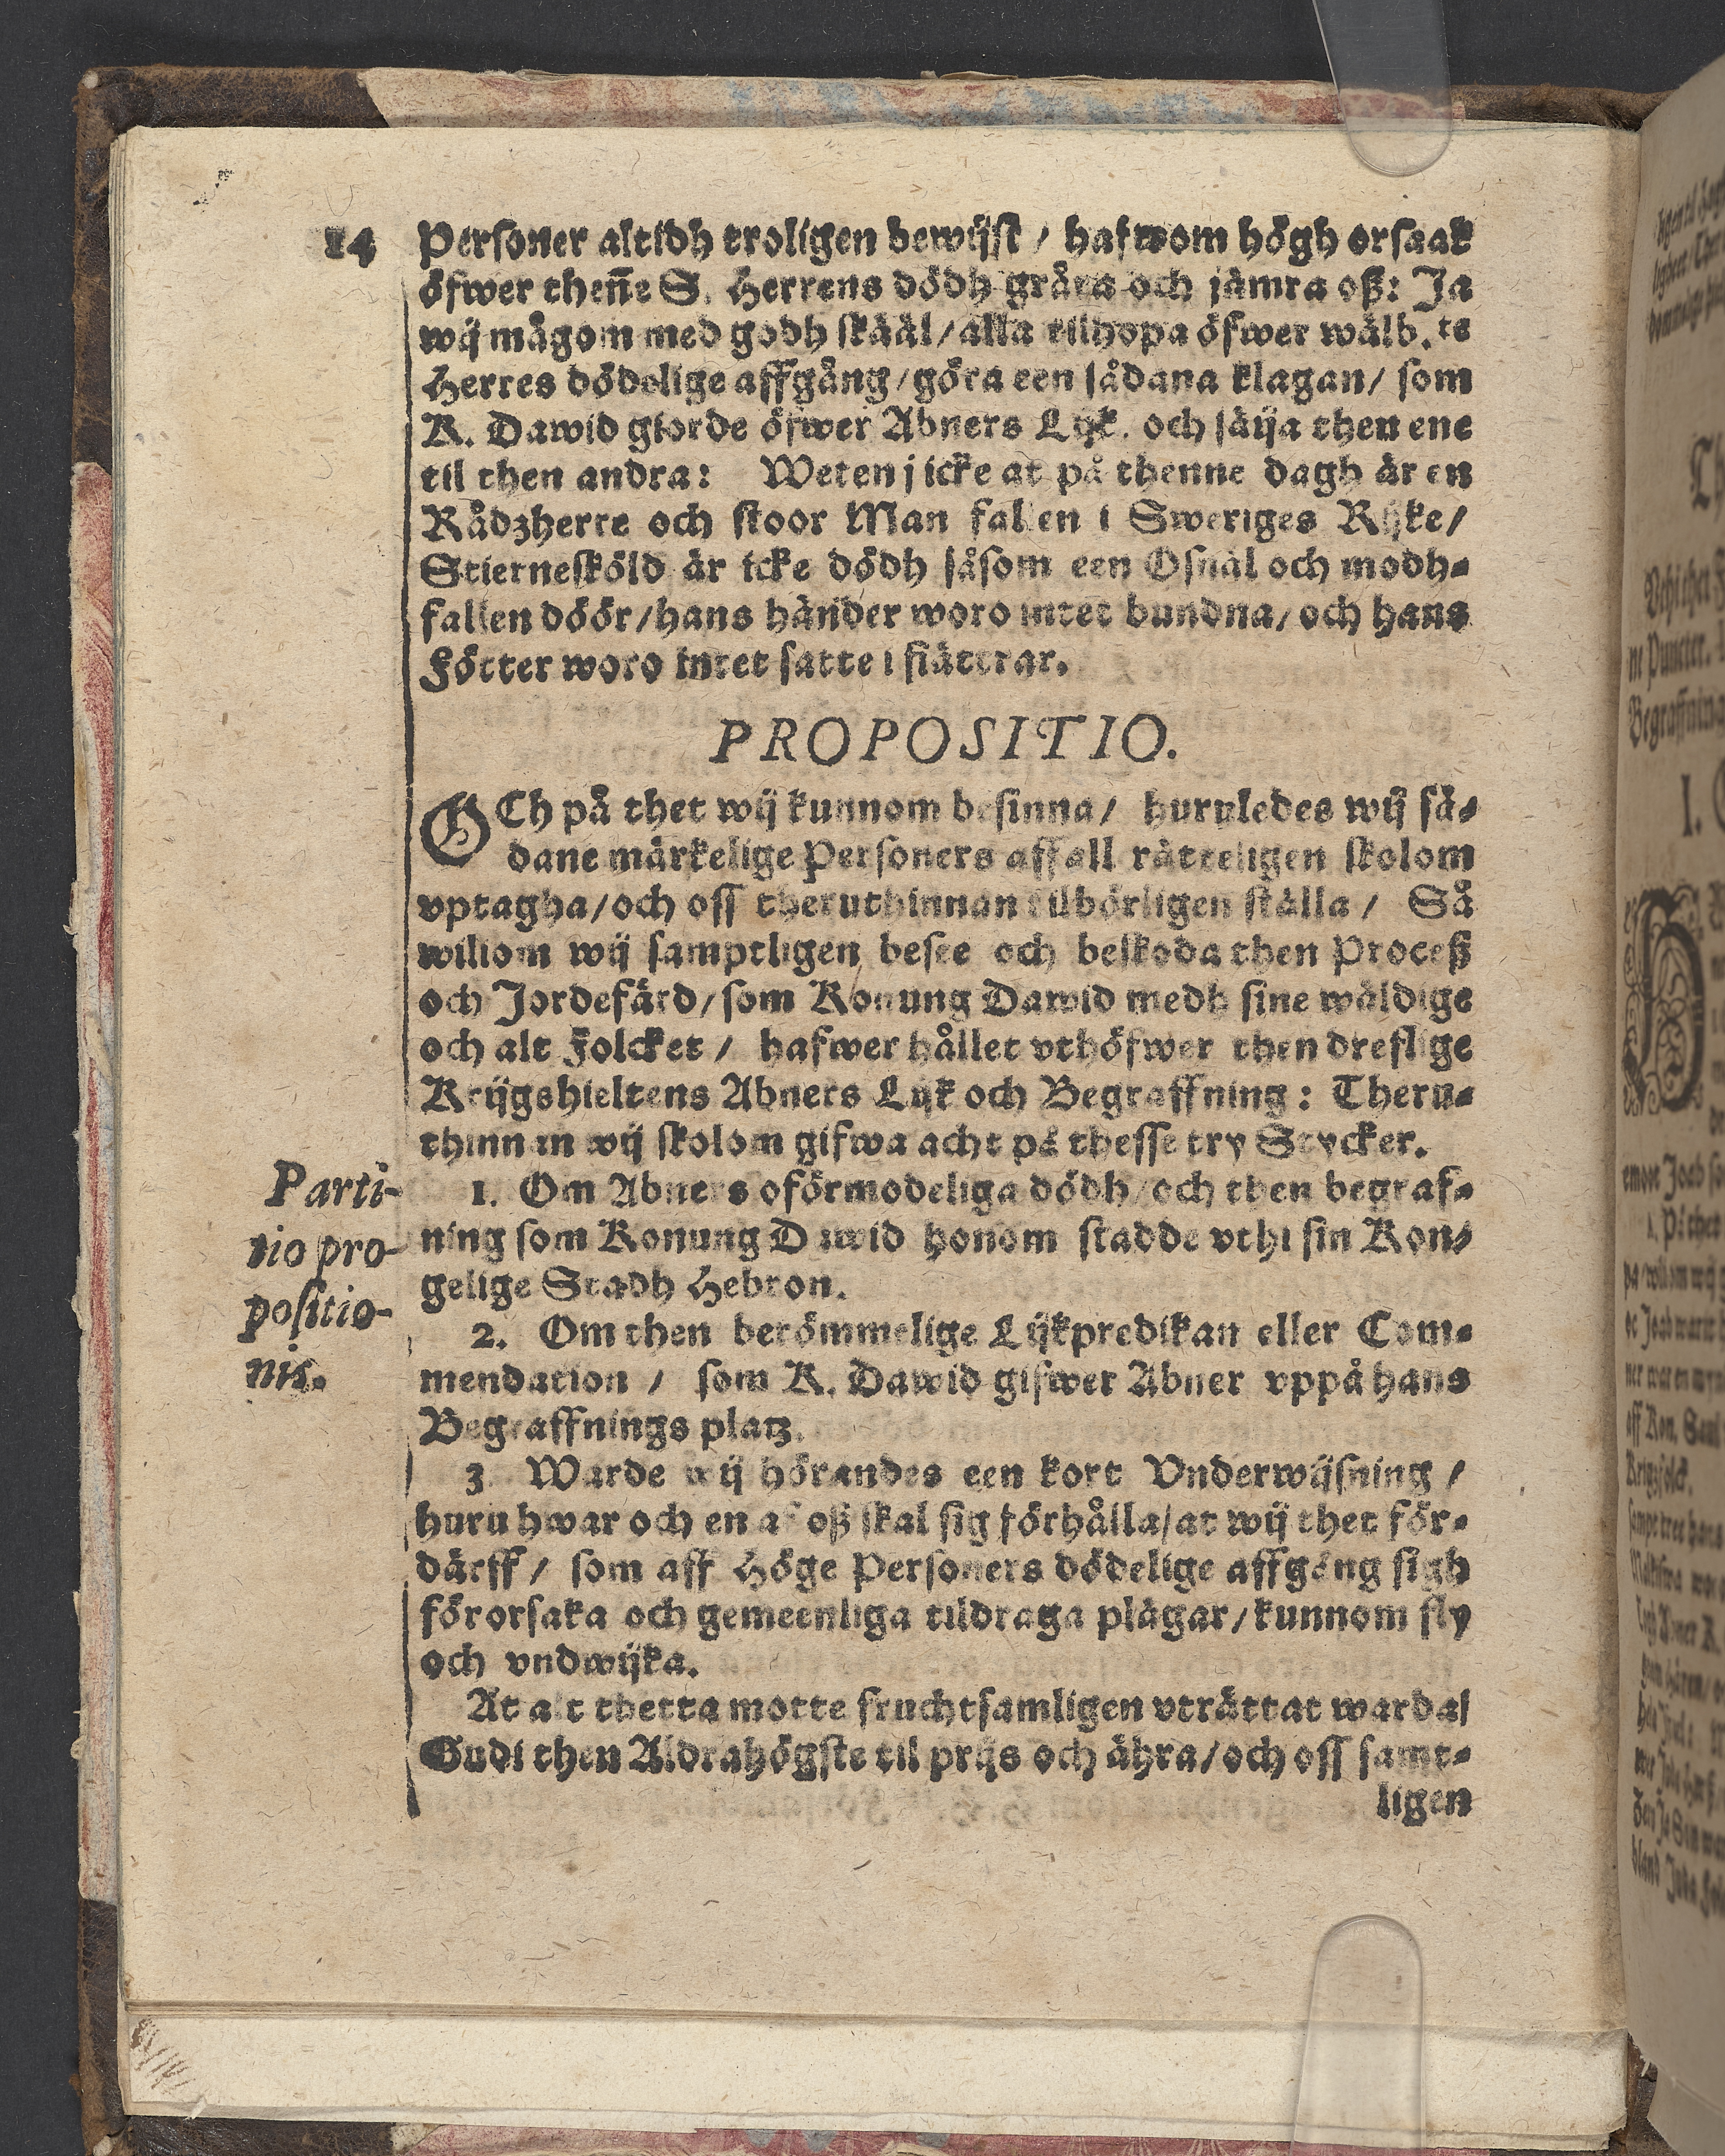 14
Personer altidh troligen bewijst / hafwom högh orsaak
öfwer theñe S. Herrens dödh gråta och jämra oß: Ja
wij mågom med godh skääl / alla tilhopa öfwer wälb.te
Herres dödelige affgång / göra een sådana klagan / som
K. Dawid giorde öfwer Abners Lijk. och säija then ene
til then andra: Weten j icke at på thenne dagh är en
Rådzherre och stoor Man fallen i Sweriges Rijke /
Stiernesköld är icke dödh såsom een Osnäl och modh-
fallen döör / hans händer woro intet bundna / och hans
Fötter woro intet satte i fiättrar.
PROPOSITIO.
OCh på thet wij kunnom besinna / huruledes wij så-
dane märkelige Personers affall rätteligen skolom
vptagha / och oss theruthinnan tilbörligen ställa / Så
wiliom wij samptligen besee och beskoda then Proceß
och Jordefärd / som Konung Dawid medh sine wäldige
och alt Folcket / hafwer hållet vthöfwer then dreflige
Krijgshieltens Abners Lijk och Begraffning: Theru-
thinnan wij skolom gifwa acht på thesse try Stycker.
1. Om Abners oförmodeliga dödh / och then begraf-
ning som Konung Dawid honom stadde vthi sin Kon-
gelige Stadh Hebron.
2. Om then berömmelige Lijkpredikan eller Com-
mendation / som K. Dawid gifwer Abner vppå hans
Begraffnings platz.
3. Warde wij hörandes een kort Vnderwijsning /
huru hwar och en af oß skal sig förhålla / at wij thet för-
därff / som aff Höge Personers dödelige affgång sigh
förorsaka och gemeenliga tildraga plägar / kunnom fly
och vndwijka.
At alt thetta motte fruchtsamligen vträttat warda /
Gudi then Aldrahögste til prijs och ähra / och oss samt-
ligen
Parti-
tio pro-
positio-
nis.